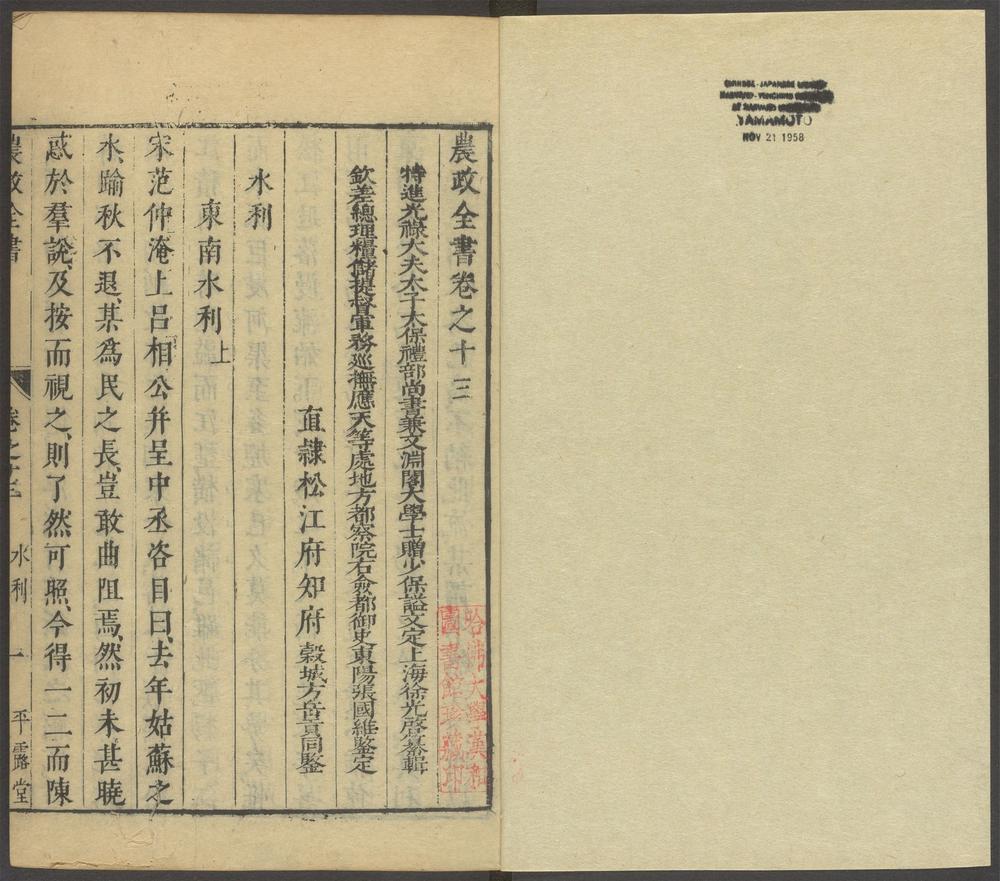 CHINESE - JAPANESE
HARVARD - YENCHING
AT HARVARD
YAMAMOTO
NOV 21 1958
農政全書卷之十三
特進光祿大夫太子太保禮部尚書兼文淵閣大學士贈少保謚文定上海徐光啓纂輯
欽差總理糧儲提督軍務巡撫應天等處地方都察院右僉都御史東陽張國維鑒定
直隷松江府知府穀城方岳貢同鑒
水利
東南水利上
宋范仲淹上呂相公并呈中丞咨目曰、去年姑蘇之
水、踰秋不退、某爲民之長、豈敢曲阻焉、然初未甚曉
惑於羣說、及按而視之、則了然可照、今得一二而陳
農政全書 卷之十三 水利 一 平露堂
哈佛大學漢和
圖書館珍藏印